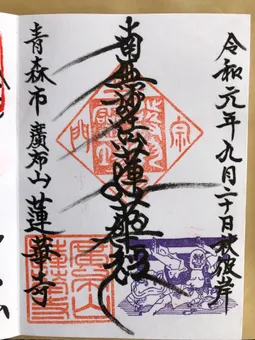 令和元年九月二十日秋彼岸
南無妙法蓮華経
青森市廣布山蓮華寺